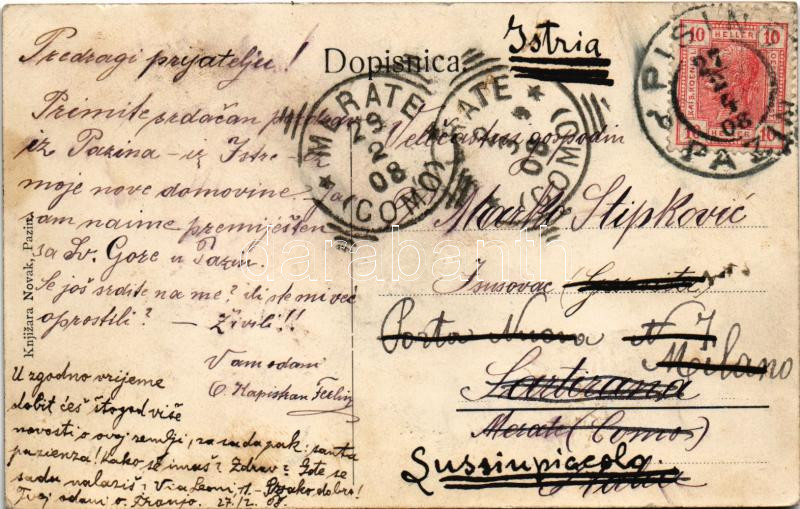 Predragi prijatelju!
Primite srdačan pozdrav
iz Pazina - iz Istre - iz
moje nove domovine. Ja
sam naime premješten
sa Sv. Gore u Pazin.
Se još srdite na me? ili ste mi već
oprostili? — Živili!!
Vam odani
O. Kapistran
U zgodno vrijeme
dobit ćeš štogod više
novosti o ovoj zemlji, za sada pak: santa
pazienza! Kako se imaš? Zdrav? Gdje se
sada nalaziš? Via Leoni, 1. - Svako dobro!
Tvoj odani o. Franjo. 27./2. 08.
Knjižara Novak, Pazin.
Dopisnica
Istria
MERATE
29 2 08
(COMO)
MERATE
08
(COMO)
10 HELLER 10
PISINO
08
PAZIN
Velečastni gospodin
Marko Stipković
Isusovac
Porta Nuova N 7
Milano
Sartirana
Merate (Como)
Lussinpiccolo
Italia
darabanth